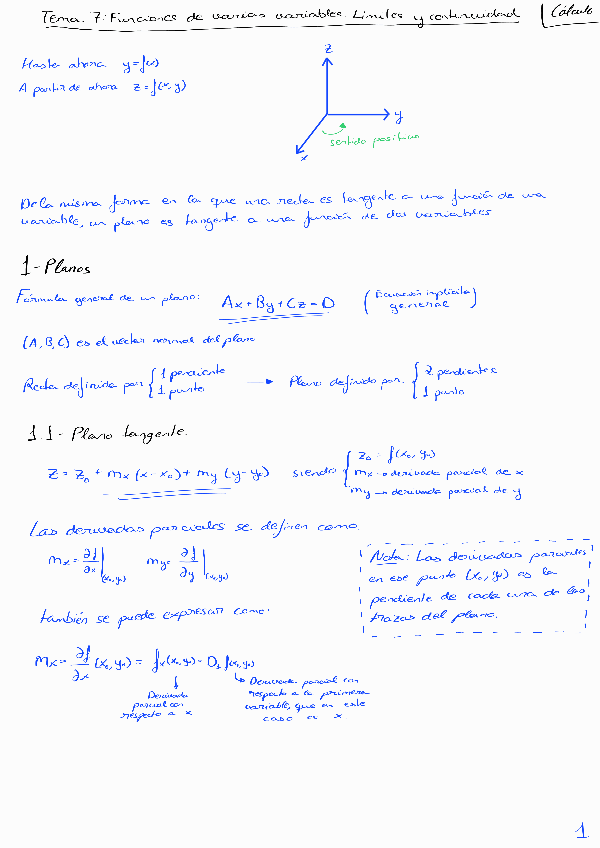 Tema 7: Funciones de varias variables. Límites y continuidad
Cálculo
Hasta ahora y = f(x)
A partir de ahora z = f(x, y)
z
y
x
sentido positivo
De la misma forma en la que una recta es tangente a una función de una
variable, un plano es tangente a una función de dos variables
1- Planos
Fórmula general de un plano: Ax + By + Cz = D (Ecuación implícita general)
(A, B, C) es el vector normal del plano
Recta definida por { 1 pendiente 1 punto → Plano definido por: { 2 pendientes 1 punto
1.1- Plano tangente.
z = z₀ + mx (x - x₀) + my (y - y₀) siendo { z₀ = f(x₀, y₀)
mx → derivada parcial de x
my → derivada parcial de y
Las derivadas parciales se definen como:
mx = ∂f/∂x |(x₀,y₀) my = ∂f/∂y |(x₀,y₀)
Nota: Las derivadas parciales
en ese punto (x₀, y₀) es la
pendiente de cada una de las
trazas del plano.
también se puede expresar como:
mx = ∂f/∂x (x₀, y₀) = fx(x₀, y₀) = D₁ f(x₀, y₀)
Derivada
parcial con
respecto a x
Derivada parcial con
respecto a la primera
variable, que en este
caso es x
1